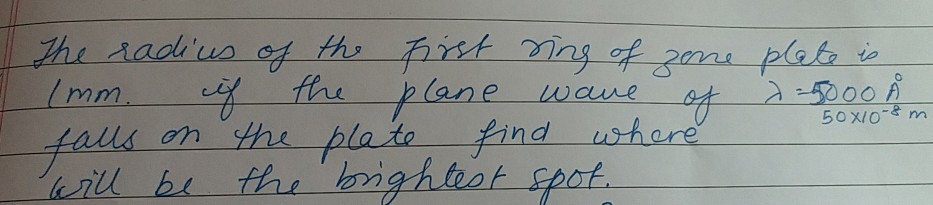 The radius of the first ring of zone plate is
1mm. if the plane wave of λ=5000 Å
50x10⁻⁸ m
falls on the plate find where
will be the brightest spot.